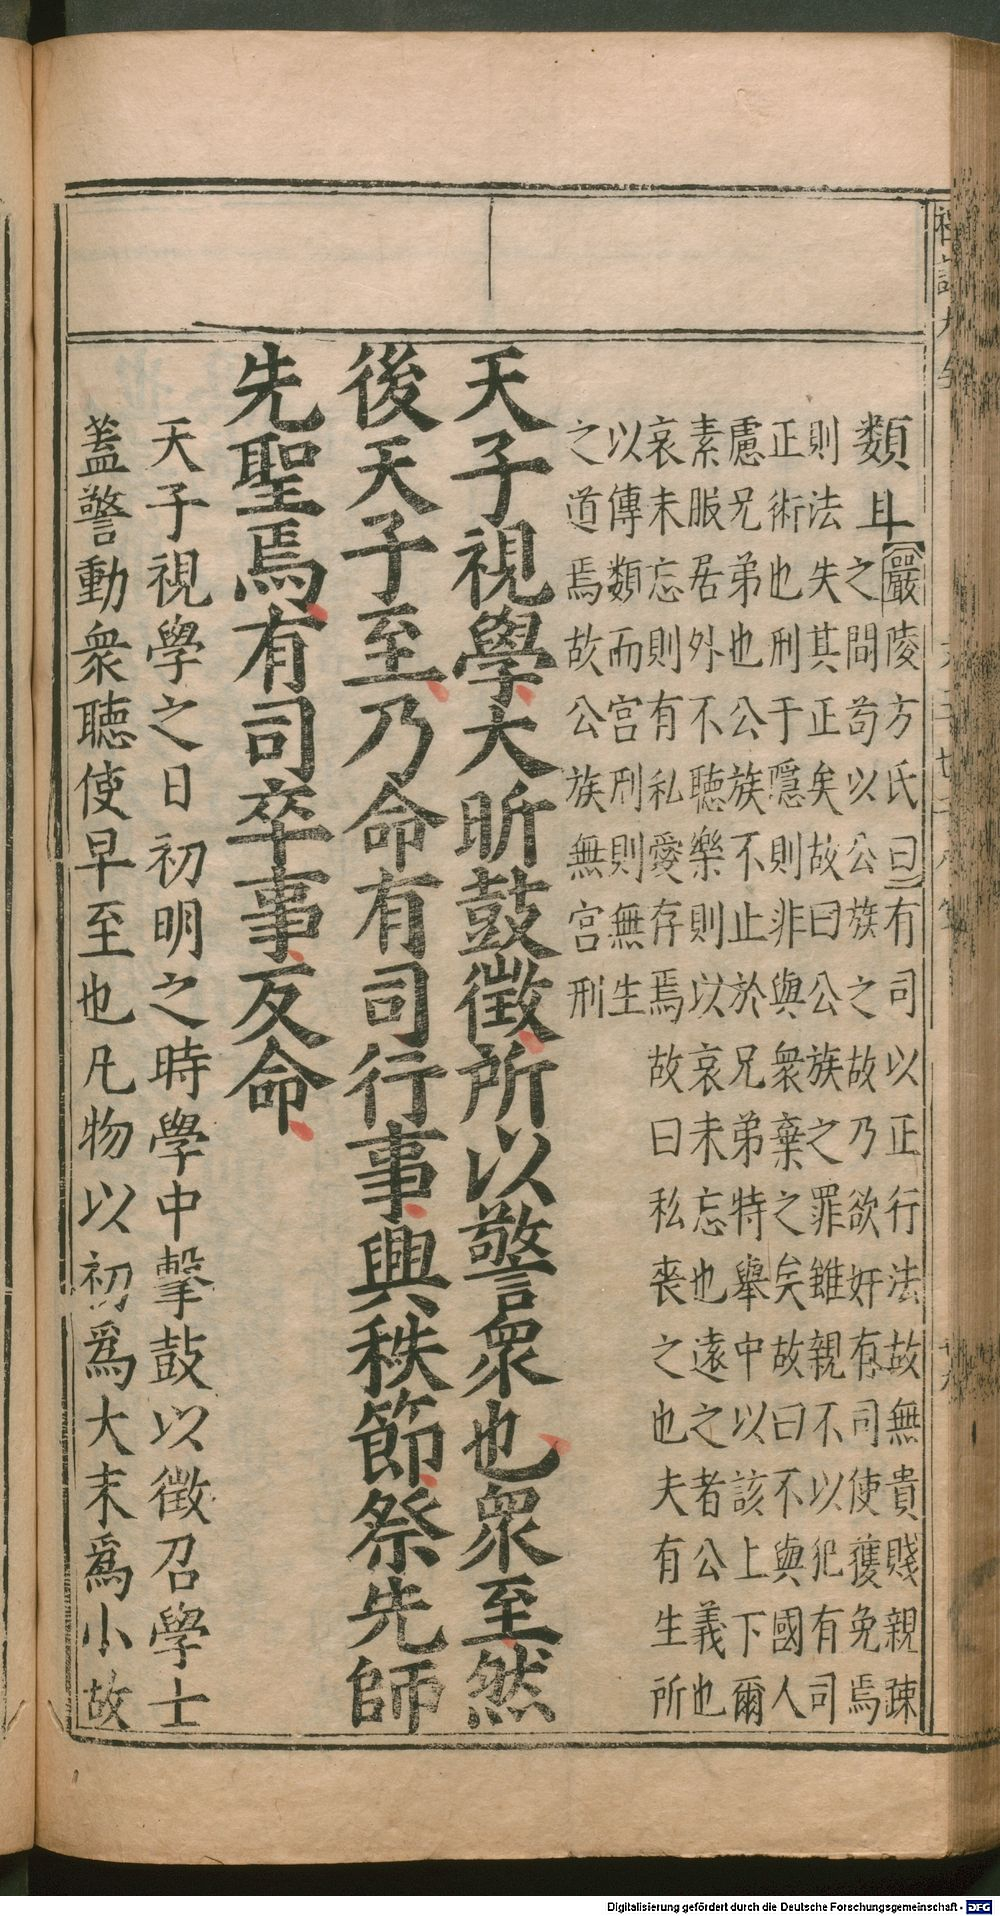 類
嚴陵方氏曰有司以正行法故無貴賤親踈
之間苟以公族之故乃欲奸有司使獲免焉
則法失其正矣故曰公族之罪雖親不以犯有司
正術也刑于隱則非與衆棄之矣故曰不與國人
慮兄弟也公族不止於兄弟特舉中以該上下爾
素服居外不聽樂則以哀未忘也遠之者公義也
哀未忘則有私愛存焉故曰私喪之也夫有生所
以傳類而宮刑則無生
之道焉故公族無宮刑
天子視學大昕鼓徵所以警衆也衆至然
後天子至乃命有司行事興秩節祭先師
先聖焉有司卒事反命
天子視學之日初明之時學中擊鼓以徵召學士
蓋警動衆聽使早至也凡物以初爲大末爲小故
Digitalisierung gefördert durch die Deutsche Forschungsgemeinschaft - DFG